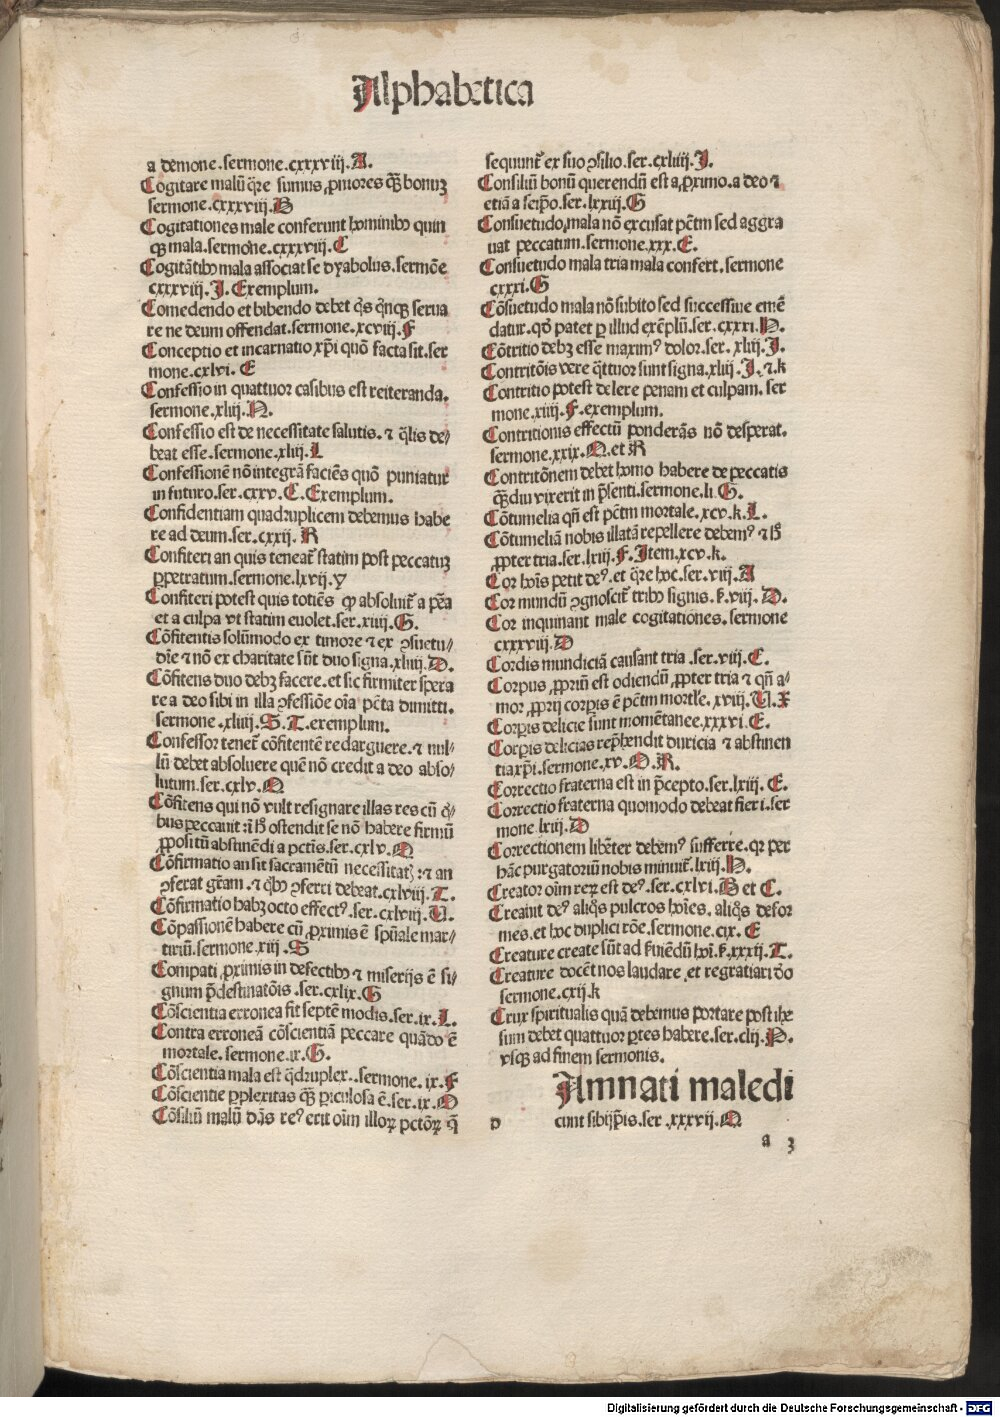 Alphabetica
a demone.sermone.cxxxviij.A.
Cogitare malū q̄re sumus ꝓniores qȝ̄ bonuȝ
sermone.cxxxviij.B
Cogitationes male conferunt hominibꝰ quin
qȝ mala.sermone.cxxxviij.C
Cogitātibꝰ mala associat se dyabolus.sermōe
cxxxviij.J.Exemplum.
Comedendo et bibendo debet q̇s q̇nqȝ serua
re ne deum offendat.sermone.xcviij.F
Conceptio et incarnatio xp̄i quō facta sit.ser
mone.cxlvi. E
Confessio in quattuor casibus est reiteranda.
sermone.xliij.N.
Confessio est de necessitate salutis. ⁊ q̄lis de⸗
beat esse.sermone.xliij.L
Confessionē nō integrā faciēs quō puniatur
in futuro.ser.cxxv.C.Exemplum.
Confidentiam quadruplicem debemus habe
re ad deum.ser.cxxij. R
Confiteri an quis teneat᷑ statim post peccatuȝ
ꝑpetratum.sermone.lxvij.y
Confiteri potest quis totiēs ꝙ absoluit᷑ a pēa
et a culpa vt statim euolet.ser.xiiij.G.
Cōfitentis solūmodo ex timore ⁊ ex ꝯsuetu⸗
dīe ⁊ nō ex charitate sūt duo signa.xliiij.D.
Cōfitens duo debȝ facere.et sic firmiter spera
re a deo sibi in illa ꝯfessiōe oīa pctā dimitti.
sermone.xliiij.S.T.exemplum.
Confessor tenet᷑ cōfitentē redarguere.⁊ nul⸗
lū debet absoluere quē nō credit a deo abso⸗
lutum.ser.cxlv.N
Cōfitens qui nō vult resignare illas res cū q̇⸗
bus peccauit in hoc ostendit se nō habere firmū
ꝓpositū abstinēdi a pctīs.ser.cxlv.O
Cōfirmatio an sit sacramētū necessitatꝭ:⁊ an
ꝯferat gr̄am.⁊ q̇bꝰ ꝯferri debeat.cxlviij.T.
Cōfirmatio habȝ octo effectꝰ.ser.cxlviij.U.
Cōpassionē habere cū ꝓximis ē spūale mar⸗
tiriū.sermone.xiij.S
Compati ꝓximis in defectibꝰ ⁊ miserijs ē si⸗
gnum p̄destinatōis.ser.cxlix.G
Cōscientia erronea fit septē modis.ser.ix.L.
Contra erroneā cōscientiā peccare quādo ē
mortale.sermone.ix.G.
Cōscientia mala est q̄drupler..sermone.ix.F
Cōscientie ꝑplexitas qȝ̄ ꝑiculosa ē.ser.ix.O
Cōsiliū malū dās reꝰ erit oīm illoꝝ pctōꝝ q̄
sequunt᷑ ex suo ꝯsilio.ser.cxliiij.J.
Consiliū bonū querendū est a ꝓximo.a deo ⁊
etiā a seip̄o.ser.lxxiij.G
Consuetudo mala nō excusat pctm̄ sed aggra
uat peccatum.sermone.xxx.E.
Consuetudo mala tria mala confert.sermone
cxxxi.G
Cōsuetudo mala nō subito sed successiue emē
datur.qd̄ patet ꝑ illud exēplū.ser.cxxxi.P.
Cōtritio debȝ esse maximꝰ dolor.ser.xliij.J.
Contritōis vere q̄ttuor sunt signa.xliij.J.⁊.k
Contritio potest delere penam et culpam.ser
mone.xiiij.F.exemplum.
Contritionis effectū ponderās nō desperat.
sermone.xxix.Q.et R
Contritōnem debet homo habere de peccatis
qȝ̄diu vixerit in p̄senti.sermone.li.G.
Cōtumelia qn̄ est pctm̄ mortale.xcv.k.L.
Cōtumeliā nobis illatā repellere debemꝰ ⁊ hoc
ꝓpter tria.ser.lxiij.F.Item.xcv.k.
Cor hoīs petit deꝰ.et q̄re hoc.ser.viij.A
Cor mundū ꝯgnoscit᷑ tribꝰ signis.ẜ.viij.D.
Cor inquinant male cogitationes.sermone
cxxxviij.D
Cordis mundiciā causant tria.ser.viij.C.
Corpus ꝓpriū est odiendū ꝓpter tria ⁊ qn̄ a⸗
mor ꝓprij corpꝭis ē pctm̄ mortle.xviij.U.X
Corꝑis delicie sunt momētanee.xxxvi.E.
Corꝑis delicias rep̄hendit duricia ⁊ abstinen
tia xp̄i.sermone.xv.O.R.
Correctio fraterna est in p̄cepto.ser.lxiij.C.
Correctio fraterna quomodo debeat fieri.ser
mone.lxiij.D
Correctionem libēter debemꝰ sufferre.qꝛ per
hāc purgatoriū nobis minuit᷑.lxiij.P.
Creator oīm reꝝ est deꝰ.ser.cxlvi.B et C.
Creauit deꝰ aliq̇s pulcros hoīes.aliq̇s defor
mes.et hoc duplici rōe.sermone.cix.E
Creature create sūt ad ẜuiēdū hoī.ẜ.xxxij.T.
Creature docēt nos laudare et regratiari deo
sermone.cxij.k
Crux spiritualis quā debemus portare post ihe
sum debet quattuor ꝑtes habere.ser.clij.P.
vsqȝ ad finem sermonis.
Amnati maledi
d cunt sibijp̄is.ser.xxxvij.N
a 3
Digitalisierung gefördert durch die Deutsche Forschungsgemeinschaft - DFG